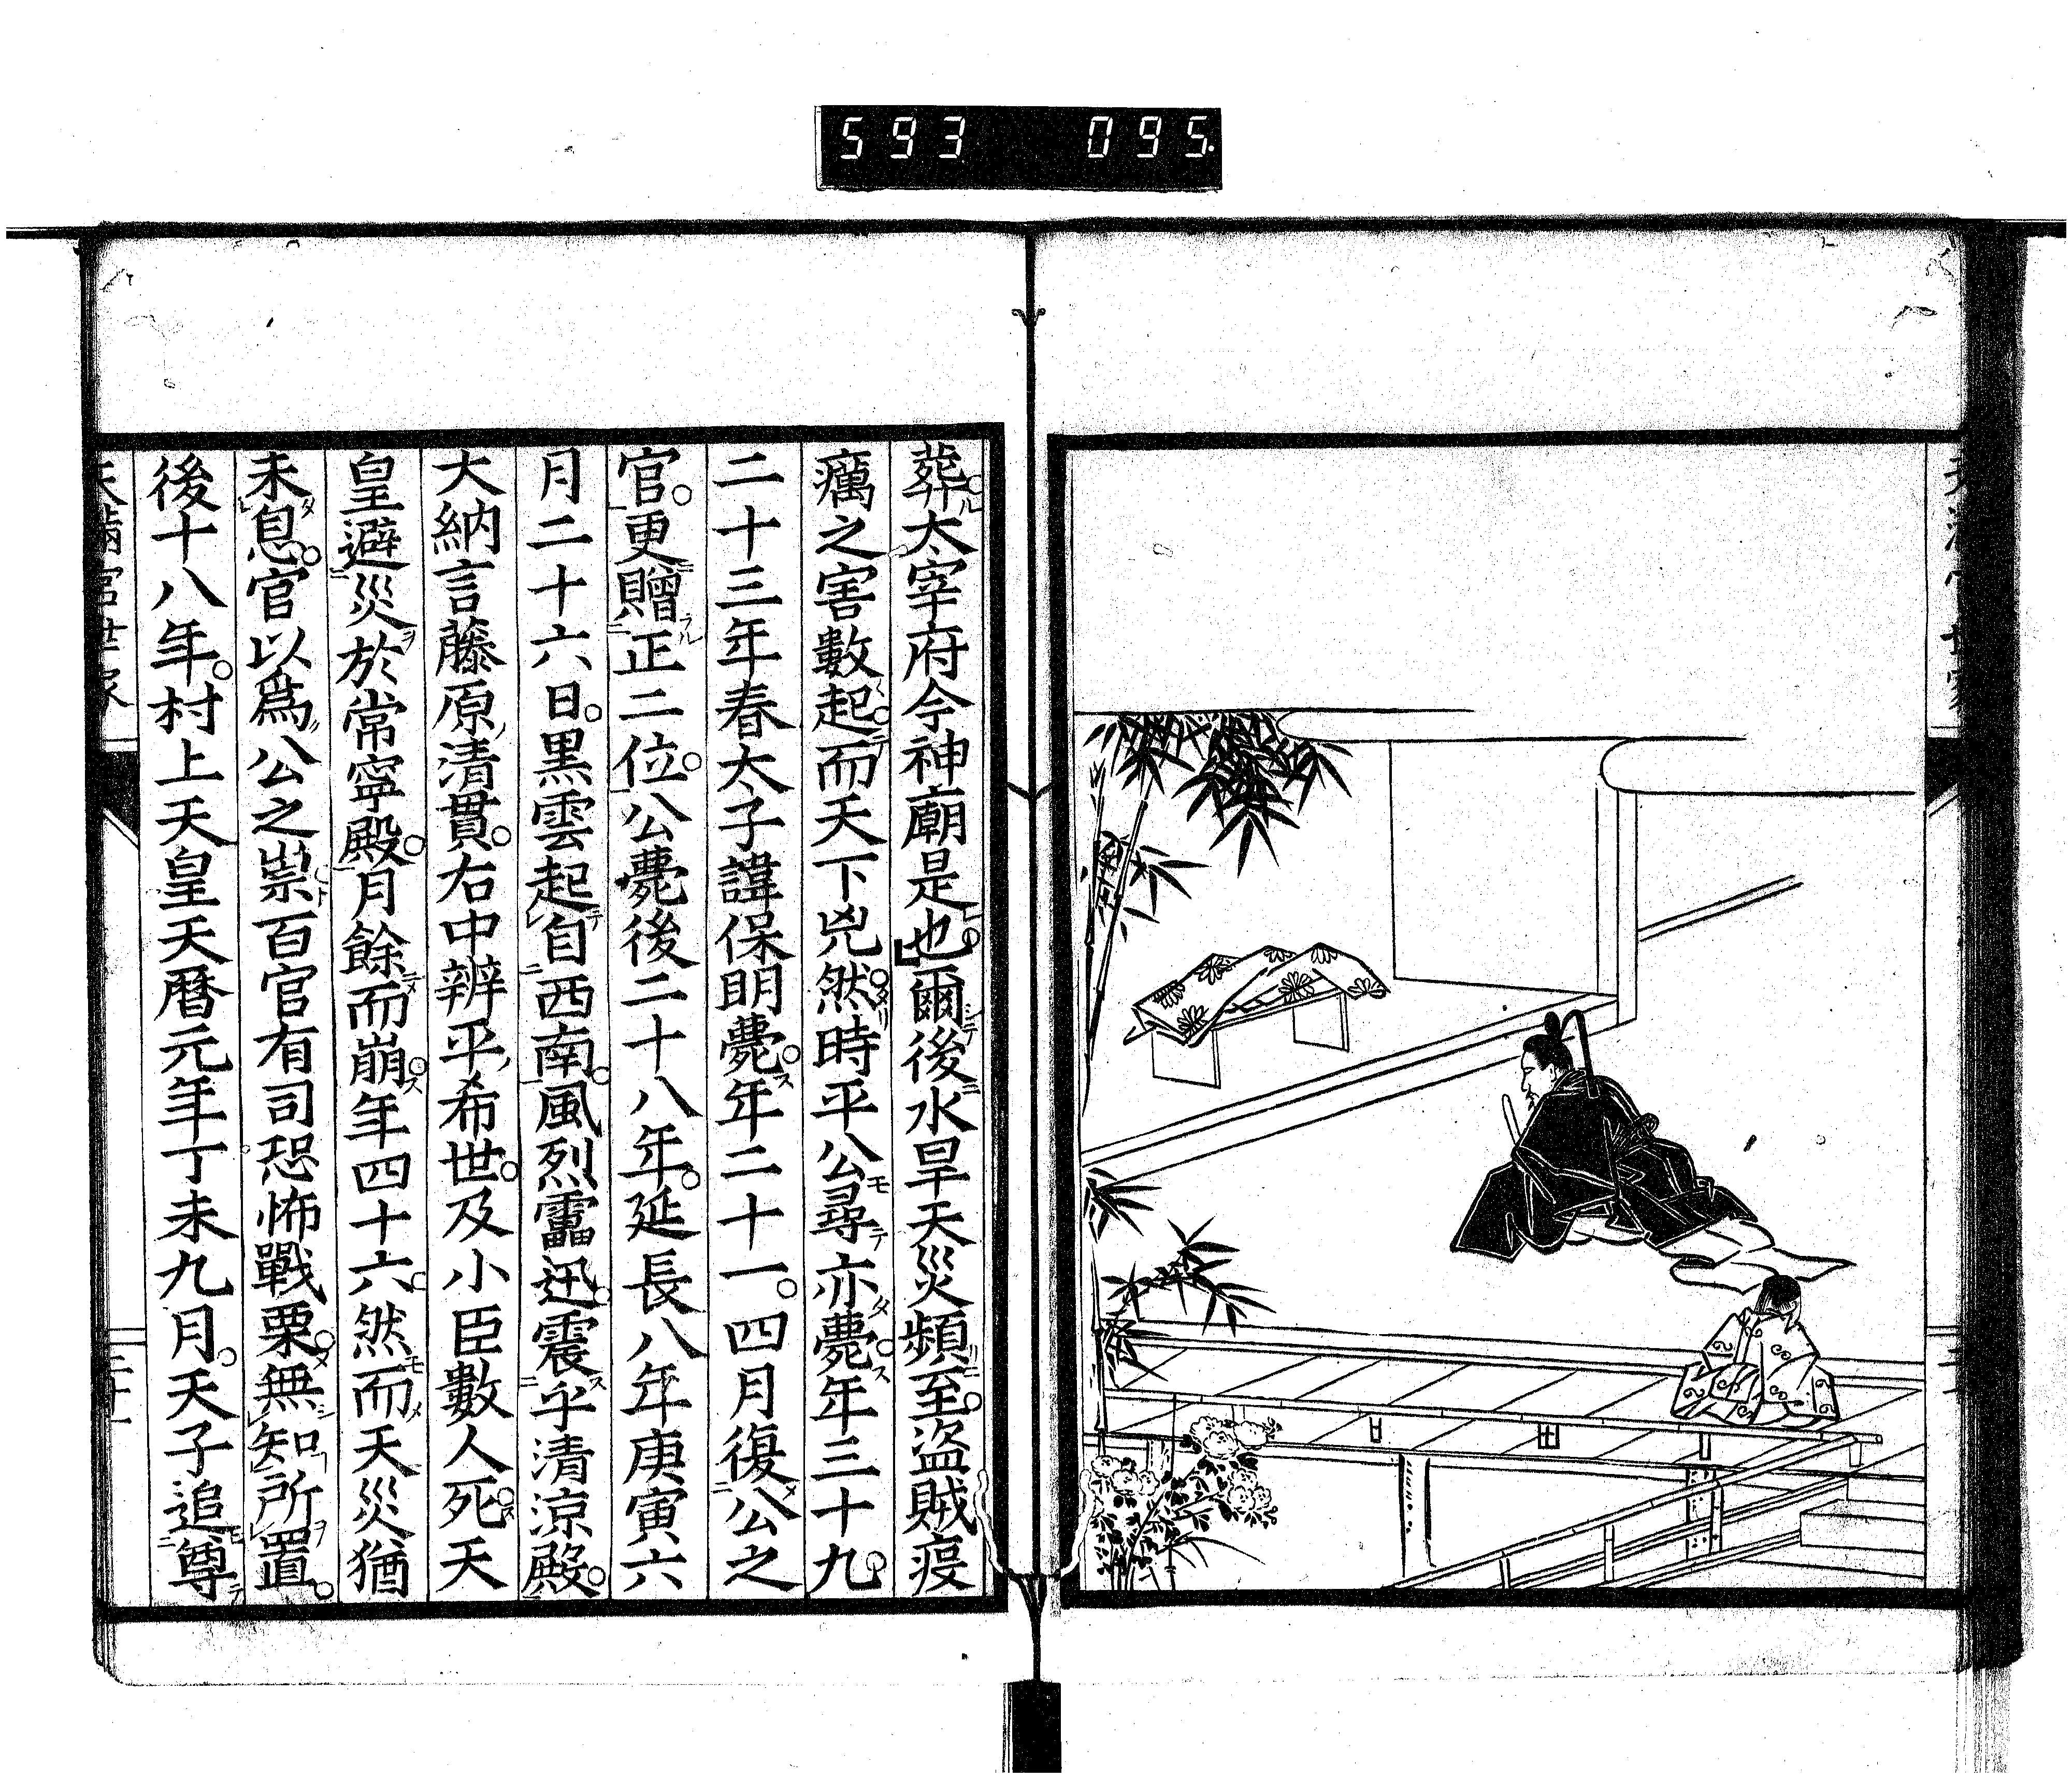 593 095
葬太宰府今神廟是也爾後水旱天災頻至盜賊疫
癘之害數起而天下兇然時平公尋亦薨年三十九
二十三年春太子諱保明薨年二十一四月復公之
官更贈正二位公薨後二十八年延長八年庚寅六
月二十六日黒雲起自西南風烈靁迅震乎清涼殿
大納言藤原清貫右中辨平希世及小臣數人死天
皇避災於常寧殿月餘而崩年四十六然而天災猶
未息官以爲公之祟百官有司恐怖戰栗無知所置
後十八年村上天皇天曆元年丁未九月天子追尊